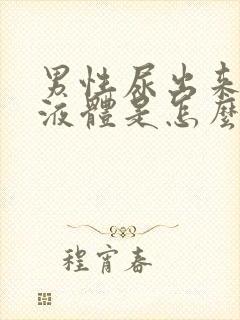 男性尿出来
液體是怎麼
程宵春